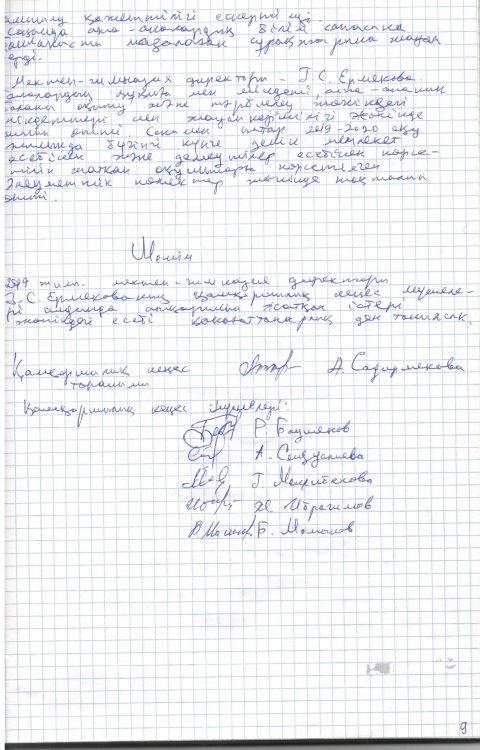 қажеттігі ескертілді.
ата-аналардың білім сапасына
мазалаған сұрақтарына жауап
берді.
Мектеп-гимназия директоры - Г.С. Ермекова.
құқығы мен міндеті, ата-ананың
баланы оқыту және тәрбиелеу жөніндегі
міндеттері мен жауапкершілігі жөнінде
айтып өтті. Сонымен қатар 2019-2020 оқу
жылында бүгінгі күнге дейін мемлекет
есебінен және демеушілер есебінен көрсе-
тіліп жатқан оқушыларға көрсетілген
әлеуметтік көмектер жөнінде тоқталып
өтті.
Шешім
2019 жылғы мектеп-гимназия директоры
Г.С. Ермекованың қамқоршылық кеңес мүшеле-
рі алдында атқарылып жатқан істері
жөніндегі есебі қанағаттанарлық деп танылсын.
Қамқоршылық кеңес А. Садырмекова
төрайымы
Қамқоршылық кеңес мүшелері:
Р. Баулянов
А. Сейдуалиева
Г. Мамрибекова
Ж. Ибрагимов
Б. Момынов
9